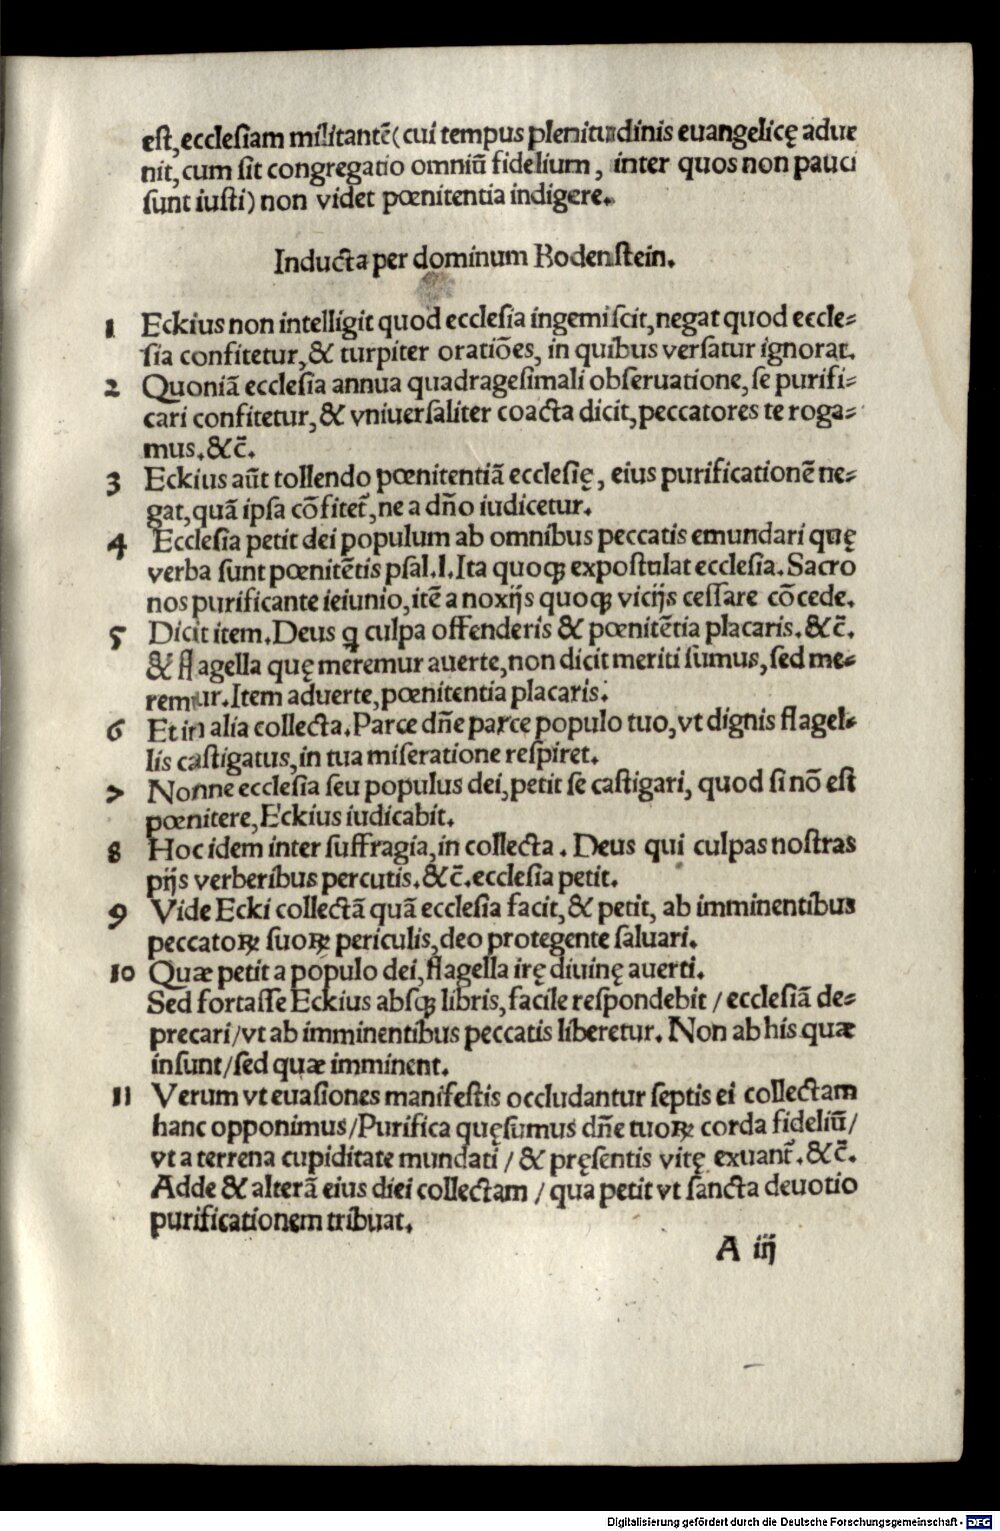 est, ecclesiam militantē (cui tempus plenitudinis euangelicę adue
nit, cum sit congregatio omniū fidelium, inter quos non pauci
sunt iusti) non videt pœnitentia indigere.
Inducta per dominum Bodenstein.
1 Eckius non intelligit quod ecclesia ingemiscit, negat quod eccle=
sia confitetur, & turpiter oratiōes, in quibus versatur ignorat.
2 Quoniā ecclesia annua quadragesimali obseruatione, se purifi=
cari confitetur, & vniuersaliter coacta dicit, peccatores te roga=
mus. &c̄.
3 Eckius aūt tollendo pœnitentiā ecclesię, eius purificationē ne=
gat, quā ipsa cōfitet᷑, ne a dn̄o iudicetur.
4 Ecclesia petit dei populum ab omnibus peccatis emundari quę
verba sunt pœnitētis psal. l. Ita quoqꝫ expostulat ecclesia. Sacro
nos purificante ieiunio, itē a noxijs quoqꝫ vicijs cessare cōcede.
5 Dicit item. Deus ꝗ culpa offenderis & pœnitētia placaris. &c̄.
& flagella quę meremur auerte, non dicit meriti sumus, sed me=
remur. Item aduerte, pœnitentia placaris.
6 Et in alia collecta. Parce dn̄e parce populo tuo, vt dignis flagel=
lis castigatus, in tua miseratione respiret.
7 Nonne ecclesia seu populus dei, petit se castigari, quod si nō est
pœnitere, Eckius iudicabit.
8 Hoc idem inter suffragia, in collecta. Deus qui culpas nostras
pijs verberibus percutis. &c̄. ecclesia petit.
9 Vide Ecki collectā quā ecclesia facit, & petit, ab imminentibus
peccatoꝝ suoꝝ periculis, deo protegente saluari.
10 Quæ petit a populo dei, flagella irę diuinę auerti.
Sed fortasse Eckius absqꝫ libris, facile respondebit / ecclesiā de=
precari / vt ab imminentibus peccatis liberetur. Non ab his quæ
insunt / sed quæ imminent.
11 Verum vt euasiones manifestis occludantur septis ei collectam
hanc opponimus / Purifica quęsumus dn̄e tuoꝝ corda fideliū /
vt a terrena cupiditate mundati / & pręsentis vitę exuant᷑. &c̄.
Adde & alterā eius diei collectam / qua petit vt sancta deuotio
purificationem tribuat.
A iij
Digitalisierung gefördert durch die Deutsche Forschungsgemeinschaft - DFG